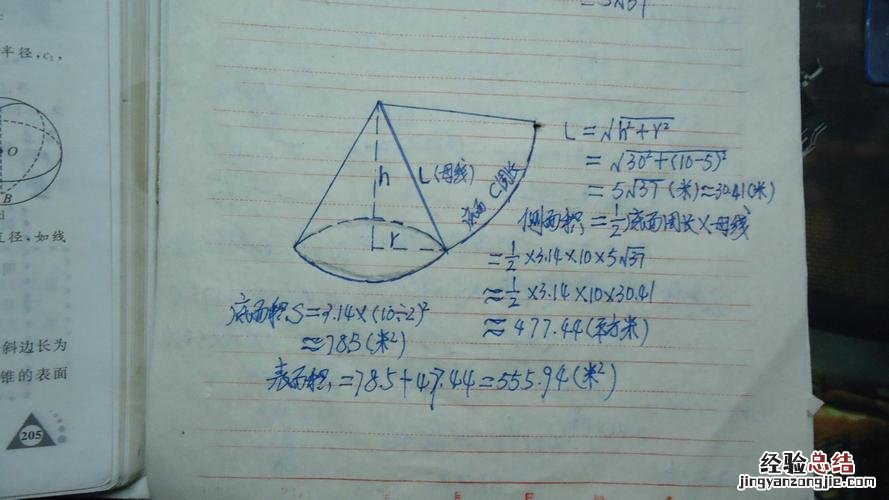 =5√37
半径,c₂,
O
B
d
直径、如线
斜边长为
锥的表面
205
h
L(母线)
底面C周长
r
L=√h²+r²
=√30²+(10-5)²
=5√37(米)≈30.41(米)
侧面积=½底面周长×母线
=½×3.14×10×5√37
≈½×3.14×10×30.41
≈477.44(平方米)
底面积S=3.14×(10÷2)²
≈78.5(米²)
表面积=78.5+47.44=555.94(米²)
经验总结
jingyanzongjie.com